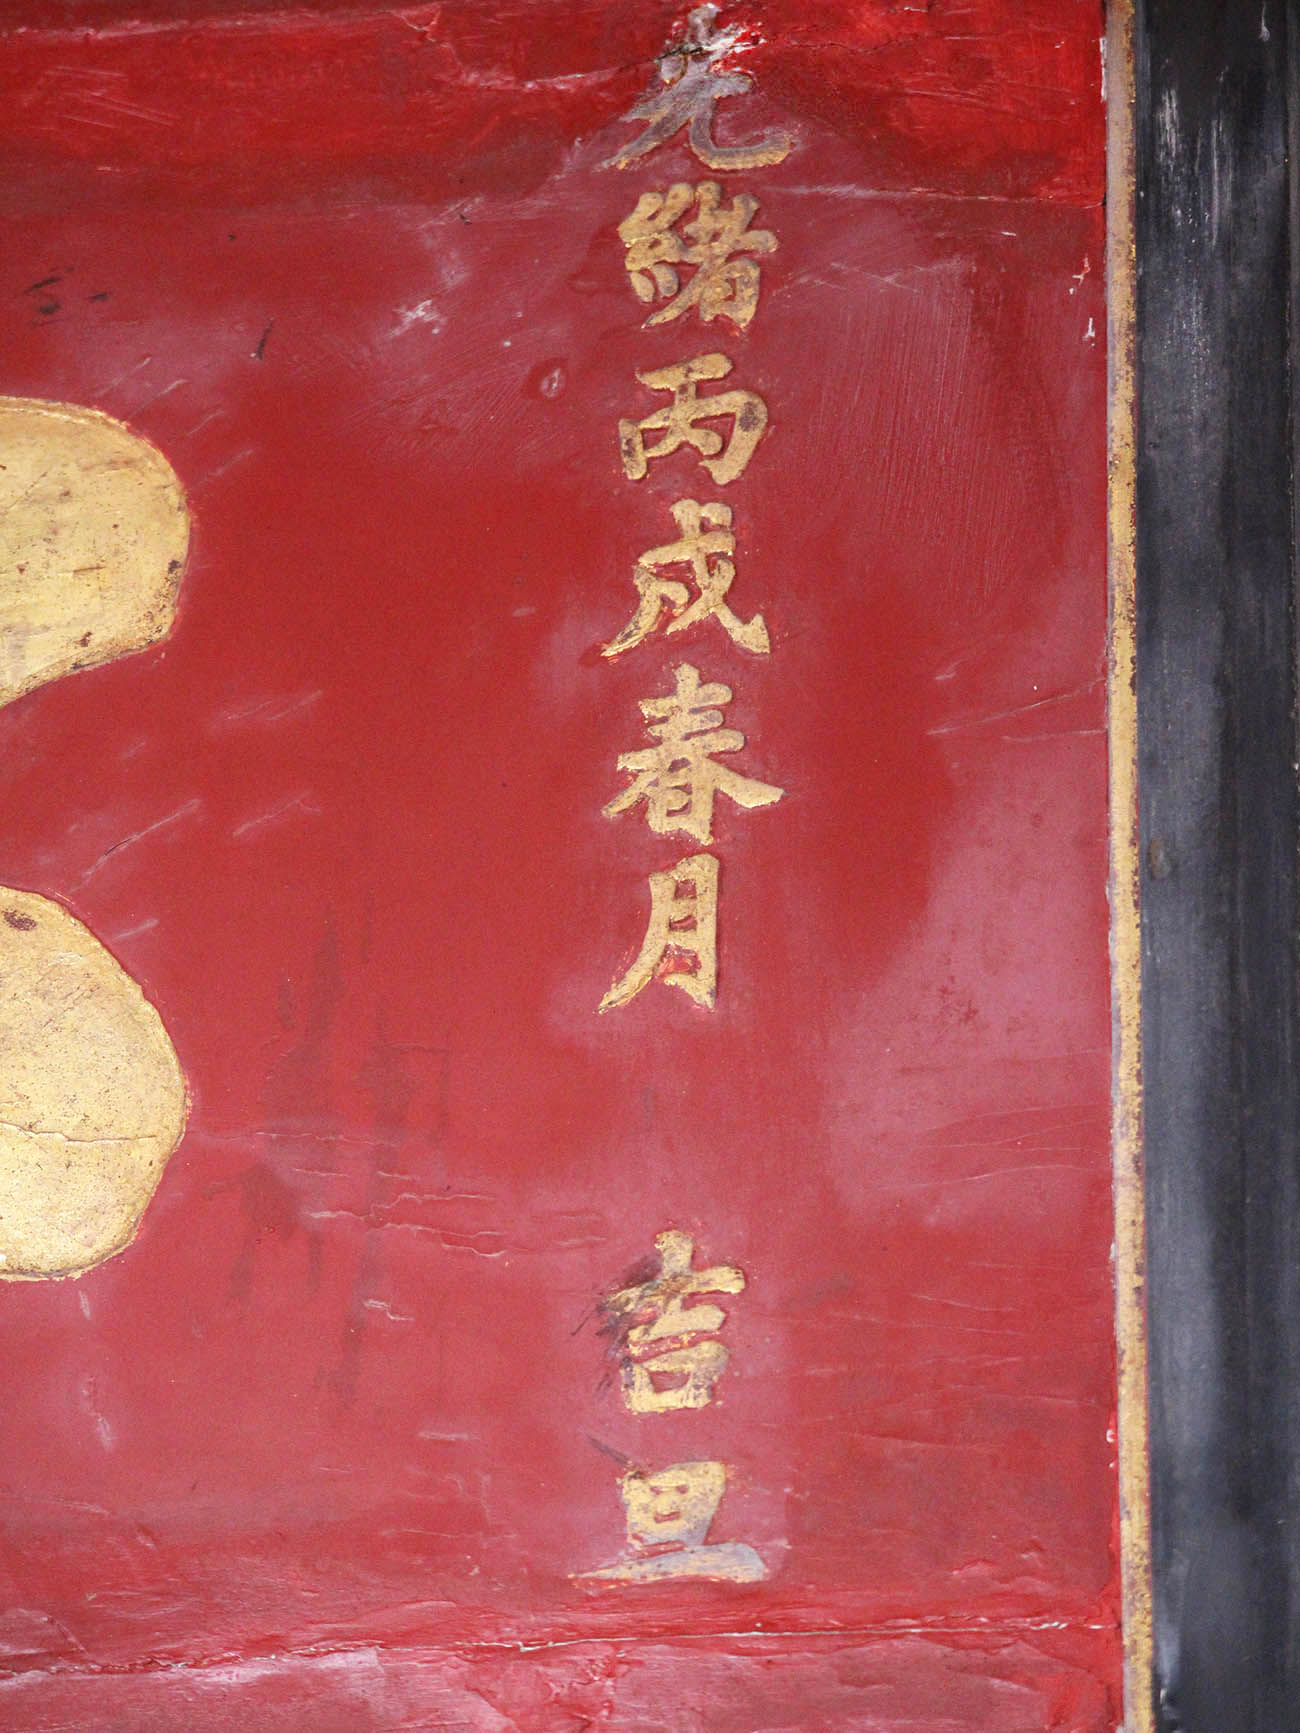 光緒丙戌春月 吉旦